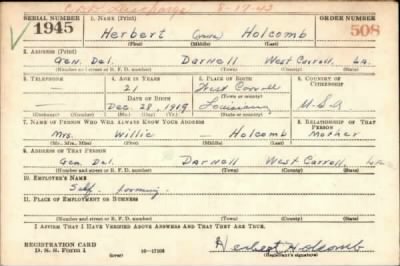 C.D.D. Discharge 8-17-43
SERIAL NUMBER 1. NAME (Print) ORDER NUMBER
1945 Herbert (none) Holcomb 508
(First) (Middle) (Last)
2. ADDRESS (Print)
Gen. Del. Darnell West Carroll, La.
(Number and street or R. F. D. number) (Town) (County) (State)
3. TELEPHONE 4. AGE IN YEARS 5. PLACE OF BIRTH 6. COUNTRY OF CITIZENSHIP
— 21 West Carroll
DATE OF BIRTH (Town or county)
Dec. 28, 1919 Louisiana U.S.A
(Exchange) (Number) (Mo.) (Day) (Yr.) (State or country)
7. NAME OF PERSON WHO WILL ALWAYS KNOW YOUR ADDRESS 8. RELATIONSHIP OF THAT PERSON
Mrs. Willie — Holcomb Mother
(Mr., Mrs., Miss) (First) (Middle) (Last)
9. ADDRESS OF THAT PERSON
Gen. Del. Darnell West Carroll, La.
(Number and street or R. F. D. number) (Town) (County) (State)
10. EMPLOYER'S NAME
Self. farming.
11. PLACE OF EMPLOYMENT OR BUSINESS
(Number and street or R. F. D. number) (Town) (County) (State)
I AFFIRM THAT I HAVE VERIFIED ABOVE ANSWERS AND THAT THEY ARE TRUE.
REGISTRATION CARD
D. S. S. Form 1 16—17105 Herbert Holcomb
(Registrant's signature)